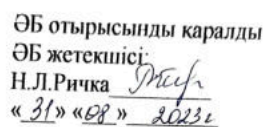 ӘБ отырысынды қаралды
ӘБ жетекшісі:
Н.Л.Ричка
« 31» «08 » 2023г